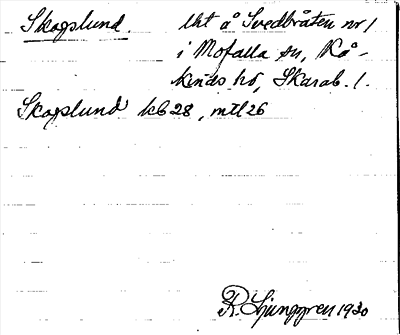 Skogslund. lht å Svedbråten nr 1
i Mofalla sn, Kå-
kinds hd, Skarab. l.
Skogslund kb 28, mtl 26
R. Ljunggren 1930